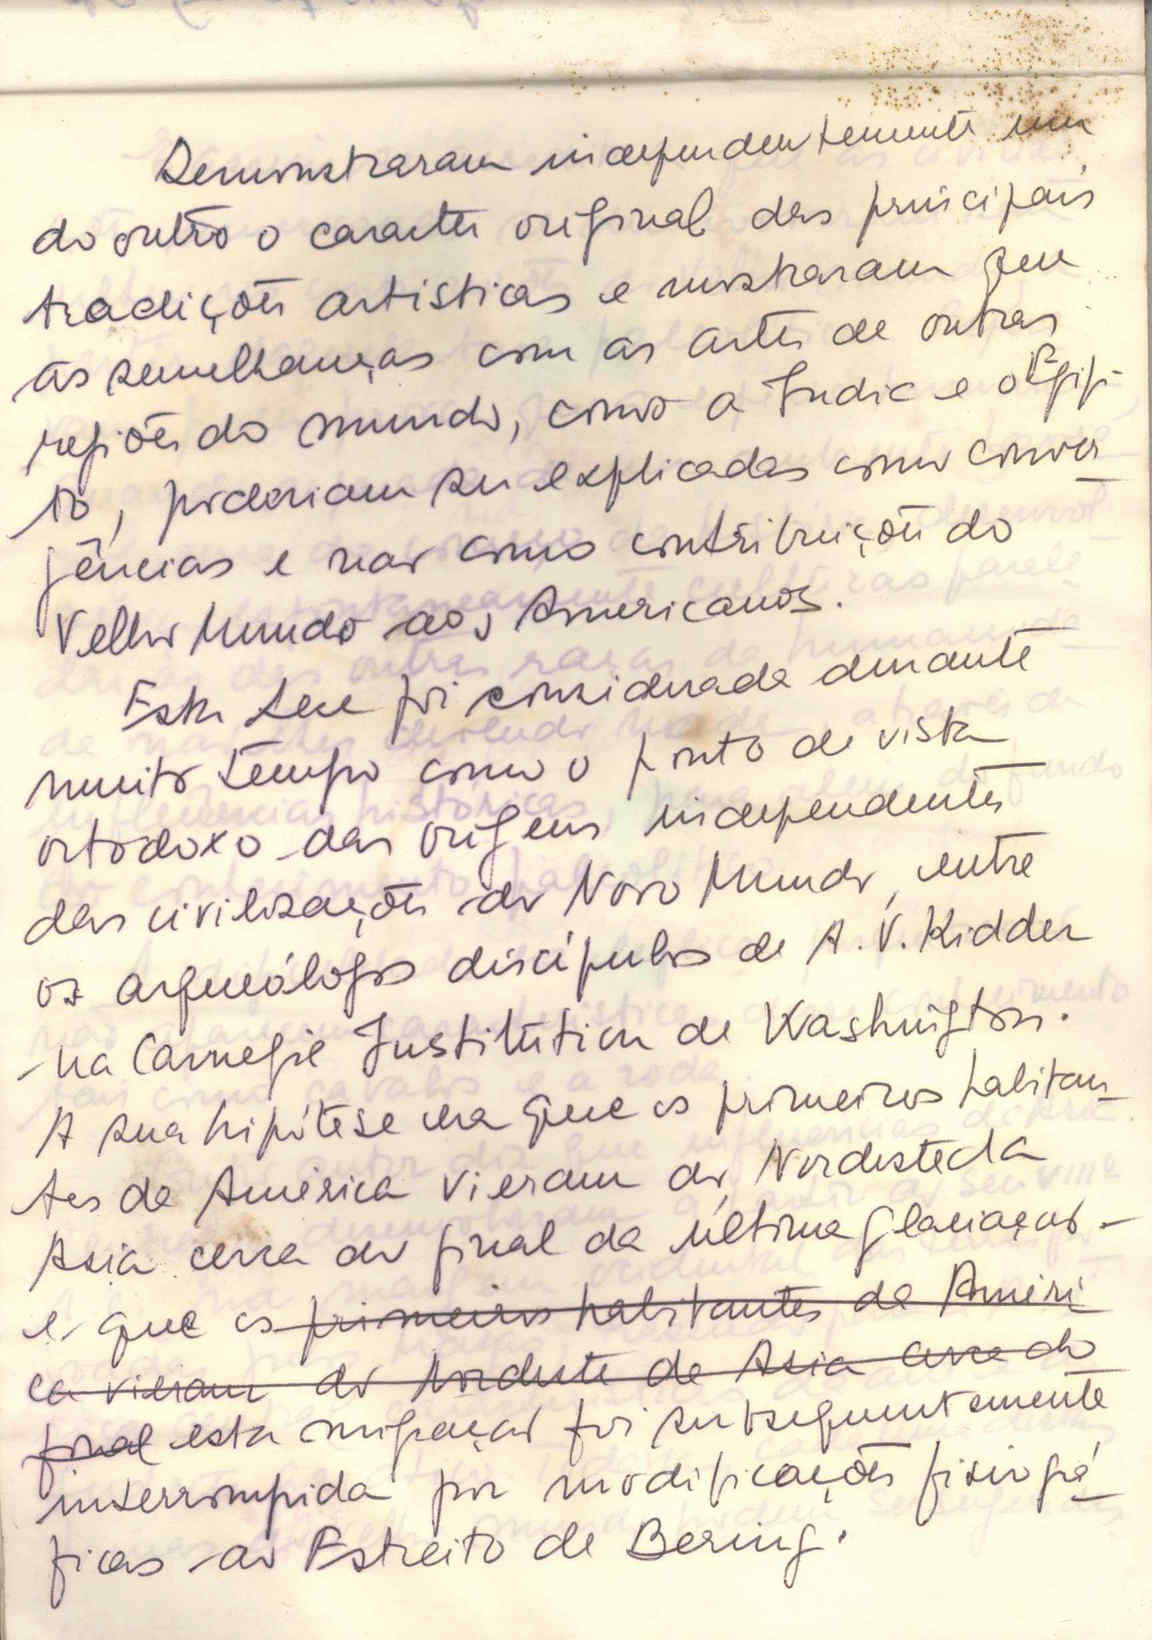 Demonstraram independentemente um
do outro o caracter original das principais
tradições artisticas e mostraram que
as semelhanças com as artes de outras
regiões do mundo, como a India e o Egip-
to, poderiam ser explicadas como conver
gências e nao como contribuições do
Velho Mundo aos Americanos.
Esta tese foi considerada durante
muito tempo como o ponto de vista
ortodoxo das origens independentes
das civilizações do Novo Mundo, entre
os arqueólogos discípulos de A. V. Kidder
na Carnegie Institution de Washington.
A sua hipótese era que os primeiros habitan
tes da América vieram do Nordeste da
Asia cerca do final da última glaciação -
e que os primeiros habitantes da Améri
ca vieram do Nordeste da Asia cerca do
final esta migração foi subsequentemente
interrompida por modificações fisiográ
ficas ao Estreito de Bering.